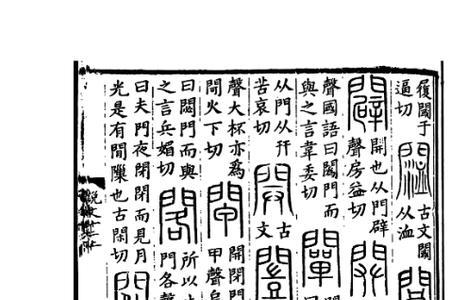 履閾于
逼切
𨵦
古文閾
从洫
闢
開也从門辟
聲房益切
聲國語曰䦱門而
與之言韋委切
闡
从門从幵
苦哀切
古
文
闓
聲大杯亦為
閜火下切
閘
開閉門
甲聲烏
曰閟門而與
之言兵媚切
閣
所以止
門各聲
曰夫門夜閉閉而見月
光是有閒隟也古閑切